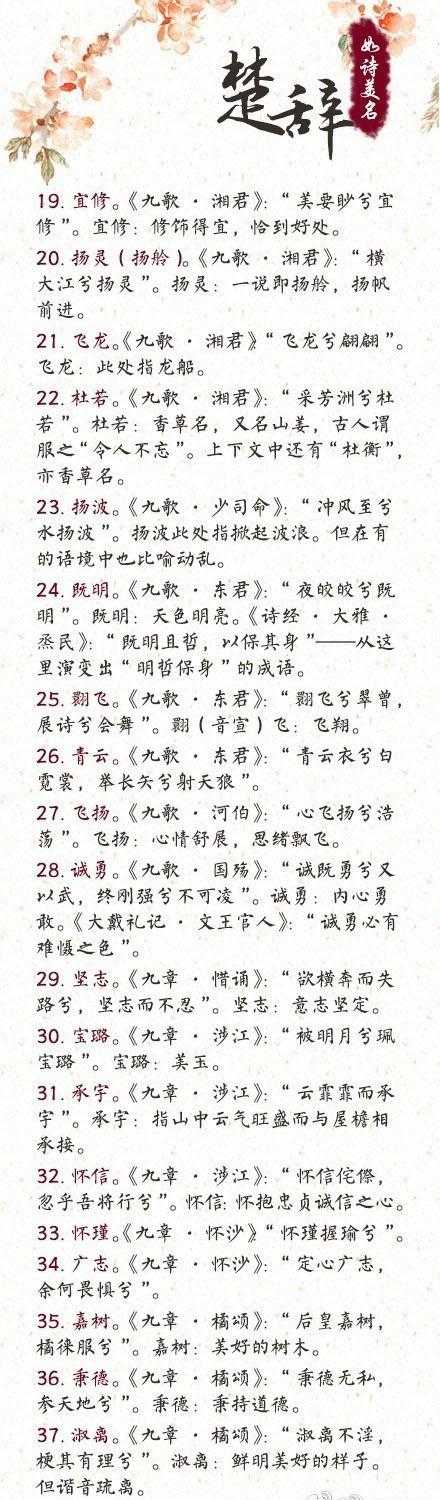 楚辞
如诗美名
19. 宜修。《九歌 · 湘君》：“ 美要眇兮宜
修 ”。宜修：修饰得宜，恰到好处。
20. 扬灵（ 扬舲 ）。《九歌 · 湘君》：“ 横
大江兮扬灵 ”。扬灵：一说即扬舲，扬帆
前进。
21. 飞龙。《九歌 · 湘君》“ 飞龙兮翩翩 ”。
飞龙：此处指龙船。
22. 杜若。《九歌 · 湘君》：“ 采芳洲兮杜
若 ”。杜若：香草名，又名山姜，古人谓
服之“ 令人不忘 ”。上下文中还有“ 杜衡 ”，
亦香草名。
23. 扬波。《九歌 · 少司命》：“ 冲风至兮
水扬波 ”。扬波此处指掀起波浪。但在有
的语境中也比喻动乱。
24. 既明。《九歌 · 东君》：“ 夜皎皎兮既
明 ”。既明：天色明亮。《诗经 · 大雅 ·
烝民》：“ 既明且哲，以保其身 ”——从这
里演变出“ 明哲保身 ”的成语。
25. 翾飞。《九歌 · 东君》：“ 翾飞兮翠曾，
展诗兮会舞 ”。翾（ 音宣 ）飞：飞翔。
26. 青云。《九歌 · 东君》：“ 青云衣兮白
霓裳，举长矢兮射天狼 ”。
27. 飞扬。《九歌 · 河伯》：“ 心飞扬兮浩
荡 ”。飞扬：心情舒展，思绪飘飞。
28. 诚勇。《九歌 · 国殇》：“ 诚既勇兮又
以武，终刚强兮不可凌 ”。诚勇：内心勇
敢。《大戴礼记 · 文王官人》：“ 诚勇必有
难慑之色 ”。
29. 坚志。《九章 · 惜诵》：“ 欲横奔而失
路兮，坚志而不忍 ”。坚志：意志坚定。
30. 宝璐。《九章 · 涉江》：“ 被明月兮珮
宝璐 ”。宝璐：美玉。
31. 承宇。《九章 · 涉江》：“ 云霏霏而承
宇 ”。承宇：指山中云气旺盛而与屋檐相
承接。
32. 怀信。《九章 · 涉江》：“ 怀信侘傺，
忽乎吾将行兮 ”。怀信：怀抱忠贞诚信之心。
33. 怀瑾。《九章 · 怀沙》“ 怀瑾握瑜兮 ”。
34. 广志。《九章 · 怀沙》：“ 定心广志，
余何畏惧兮 ”。
35. 嘉树。《九章 · 橘颂》：“ 后皇嘉树，
橘徕服兮 ”。嘉树：美好的树木。
36. 秉德。《九章 · 橘颂》：“ 秉德无私，
参天地兮 ”。秉德：秉持道德。
37. 淑离。《九章 · 橘颂》：“ 淑离不淫，
梗其有理兮 ”。淑离：鲜明美好的样子。
但谐音疏离。